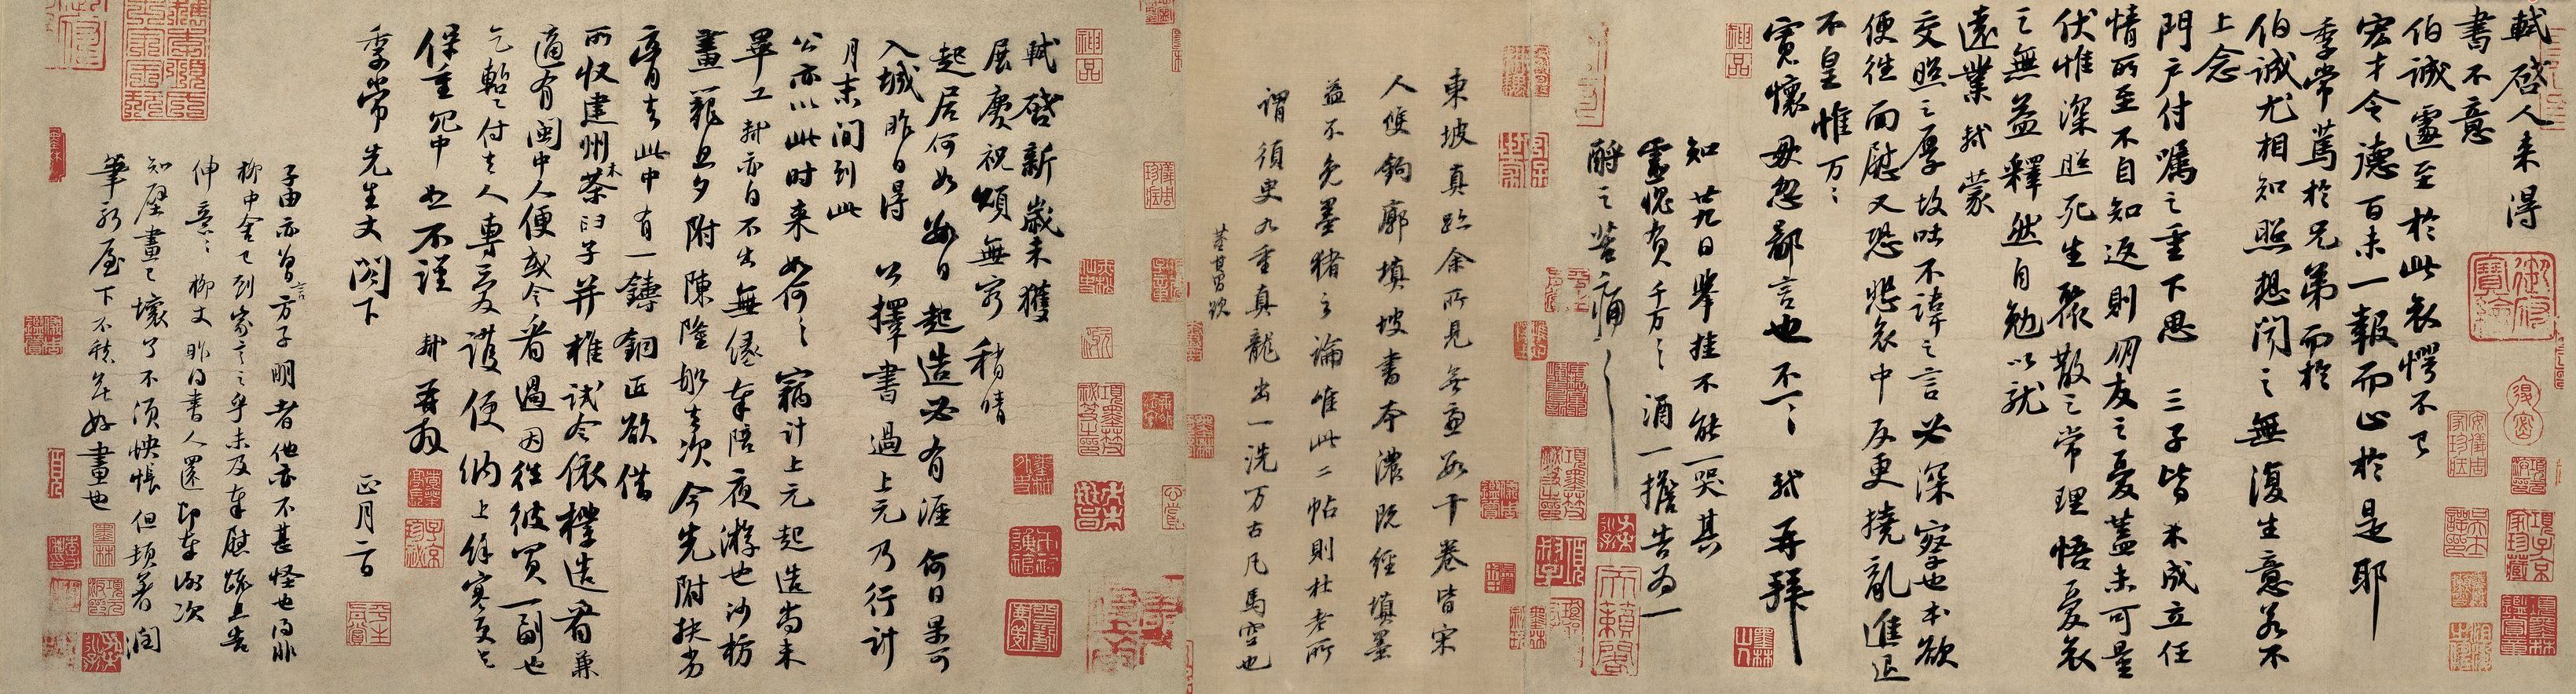 軾啓人來得
書不意
伯誠遽至於此哀愕不已
宏才令德百未一報而止於是耶
季常篤於兄弟而於
伯誠尤相知照想聞之無復生意若不
上念
門戶付囑之重下思三子皆未成立任
情所至不自知返則朋友之憂蓋未可量
伏惟深照死生聚散之常理悟憂哀
之無益釋然自勉以就
遠業軾蒙
交照之厚故吐不諱之言必深察也本欲
便往面慰又恐悲哀中反更撓亂進退
不皇惟万万
寬懷毋忽鄙言也不一一軾再拜
知廿九日舉挂不能一哭其
靈愧負千万千万酒一擔告為一
酹之苦痛苦痛
東坡真跡余所見無慮數十卷皆宋
人雙鉤廓填坡書本濃既經填墨
益不免墨豬之論唯此二帖則杜老所
謂須臾九重真龍出一洗万古凡馬空也
董其昌跋
軾啓新歲未獲
展慶祝頌無窮稍晴
起居何如數日起造必有涯何日果可
入城昨日得公擇書過上元乃行計
月末間到此
公亦以此時來如何如何竊計上元起造尚未
畢工軾亦自不出無緣奉陪夜游也沙枋
畫籠旦夕附陳隆船去次今先附扶劣
膏去此中有一鑄銅匠欲借
所收建州木茶臼子并椎試令依樣造看兼
適有閩中人便或令看過因往彼買一副也
乞暫付去人專愛護便納上餘寒更乞
保重冗中恕不謹軾再拜
季常先生丈閤下正月二日
子由亦曾言方子明者他亦不甚怪也得非
柳中舍已到家言之乎未及奉慰疏且告
伸意伸意柳丈昨得書人還即奉謝次
知壁畫已壞了不須怏悵但頓著潤
筆新屋下不愁無好畫也